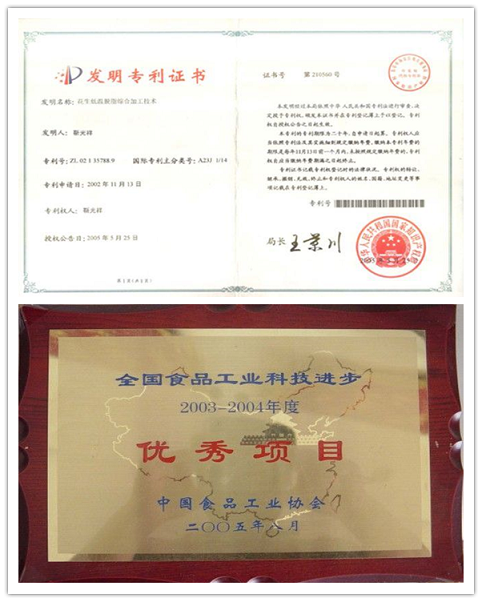 发明专利证书
发明名称：花生低温脱脂综合加工技术
发明人：靳光祥
专利号：ZL 02 1 35788.9 国际专利主分类号：A23J 1/14
专利申请日：2002年11月13日
专利权人：靳光祥
授权公告日：2005年5月25日
第1页(共1页)
证书号 第210560号
本发明经过本局依照中华人民共和国专利法进行审查，决定授予专利权，颁发本证书并在专利登记簿上予以登记。专利权自授权公告之日起生效。
本专利的专利权期限为二十年，自申请日起算。专利权人应当依照专利法及其实施细则规定缴纳年费。缴纳本专利年费的期限是每年11月13日前一个月内。未按照规定缴纳年费的，专利权自应当缴纳年费期满之日起终止。
专利证书记载专利权登记时的法律状况。专利权的转让、继承、撤销、无效、终止和专利权人的姓名、国籍、地址变更等事项记载在专利登记簿上。
专利号
局长 王景川
中华人民共和国国家知识产权局
全国食品工业科技进步
2003-2004年度
优秀项目
中国食品工业协会
二〇〇五年八月